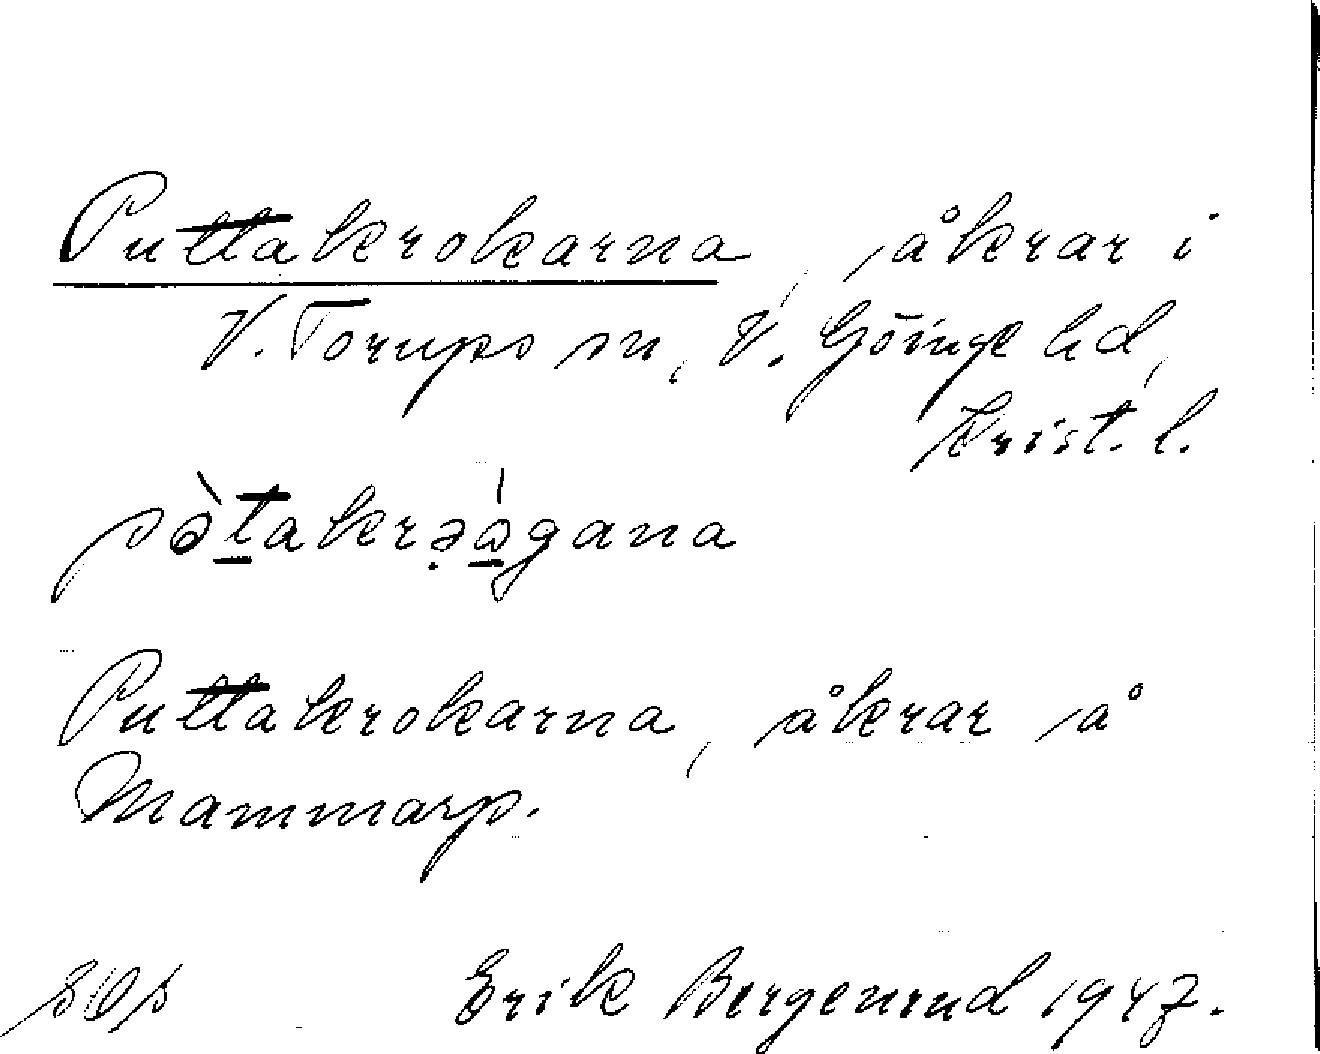 Puttakrokarna, åkrar i
V. Torups sn, V. Göinge hd,
Krist. l.
pə̀t̲akrə̣ə̲́gana
Puttakrokarna, åkrar å
Mammarp.
Erik Bergenrud 1947.